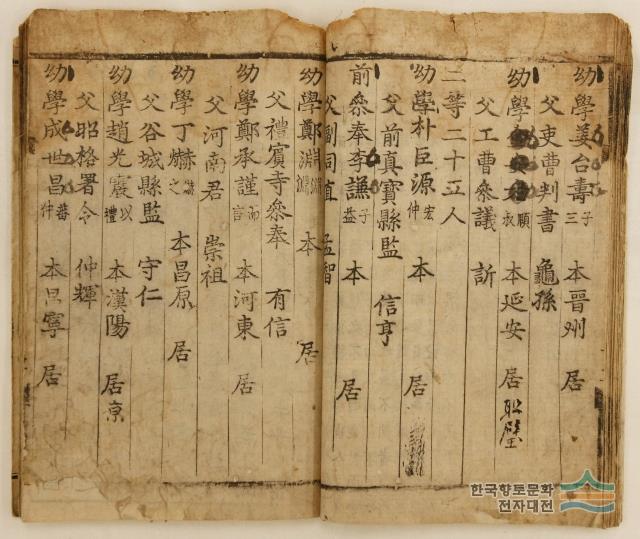 幼學姜台壽 子三 本晋州 居
父吏曹判書 龜孫
幼學 順衣 本延安 居
父工曹叅議 訢
二等二十五人
幼學朴巨源 宏仲 本 居
父前真寶縣監 信亨
前叅奉李謙 子益 本 居
父副司直 孟智
幼學鄭 本 居
父禮賓寺叅奉 有信
幼學鄭承謹 而言 本河東 居
父河南君 崇祖
幼學丁 之 本昌原 居
父谷城縣監 守仁
幼學趙光震 以禮 本漢陽 居京
父昭格署令 仲輝
幼學成世昌 蕃仲 本昌寧 居
한국향토문화
전자대전